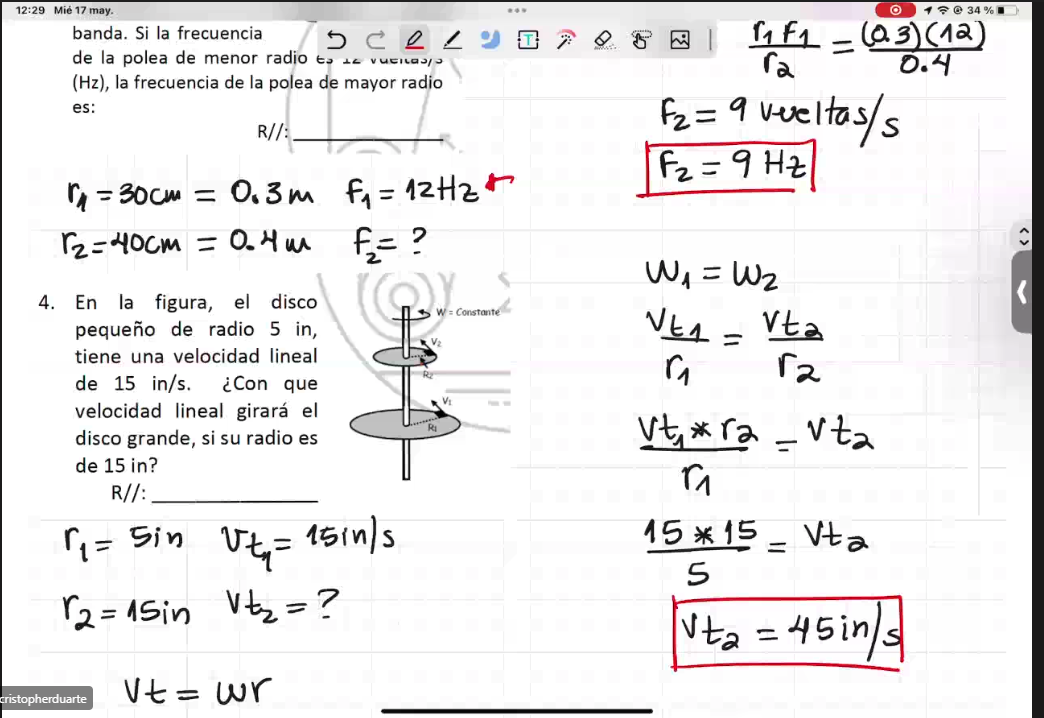 12:29 Mié 17 may.
34 %
banda. Si la frecuencia
de la polea de menor radio es 12 vueltas/s
(Hz), la frecuencia de la polea de mayor radio
es:
R//:
r1 = 30cm = 0.3m F1 = 12Hz
r2 = 40cm = 0.4m F2 = ?
4. En la figura, el disco
pequeño de radio 5 in,
tiene una velocidad lineal
de 15 in/s. ¿Con que
velocidad lineal girará el
disco grande, si su radio es
de 15 in?
R//:
W = Constante
V2
R2
V1
R1
r1 = 5in Vt1 = 15in/s
r2 = 15in Vt2 = ?
Vt = wr
r1 F1 / r2 = (0.3)(12) / 0.4
F2 = 9 vueltas/s
F2 = 9 Hz
W1 = W2
Vt1 / r1 = Vt2 / r2
Vt1 * r2 / r1 = Vt2
15 * 15 / 5 = Vt2
Vt2 = 45in/s
cristopherduarte